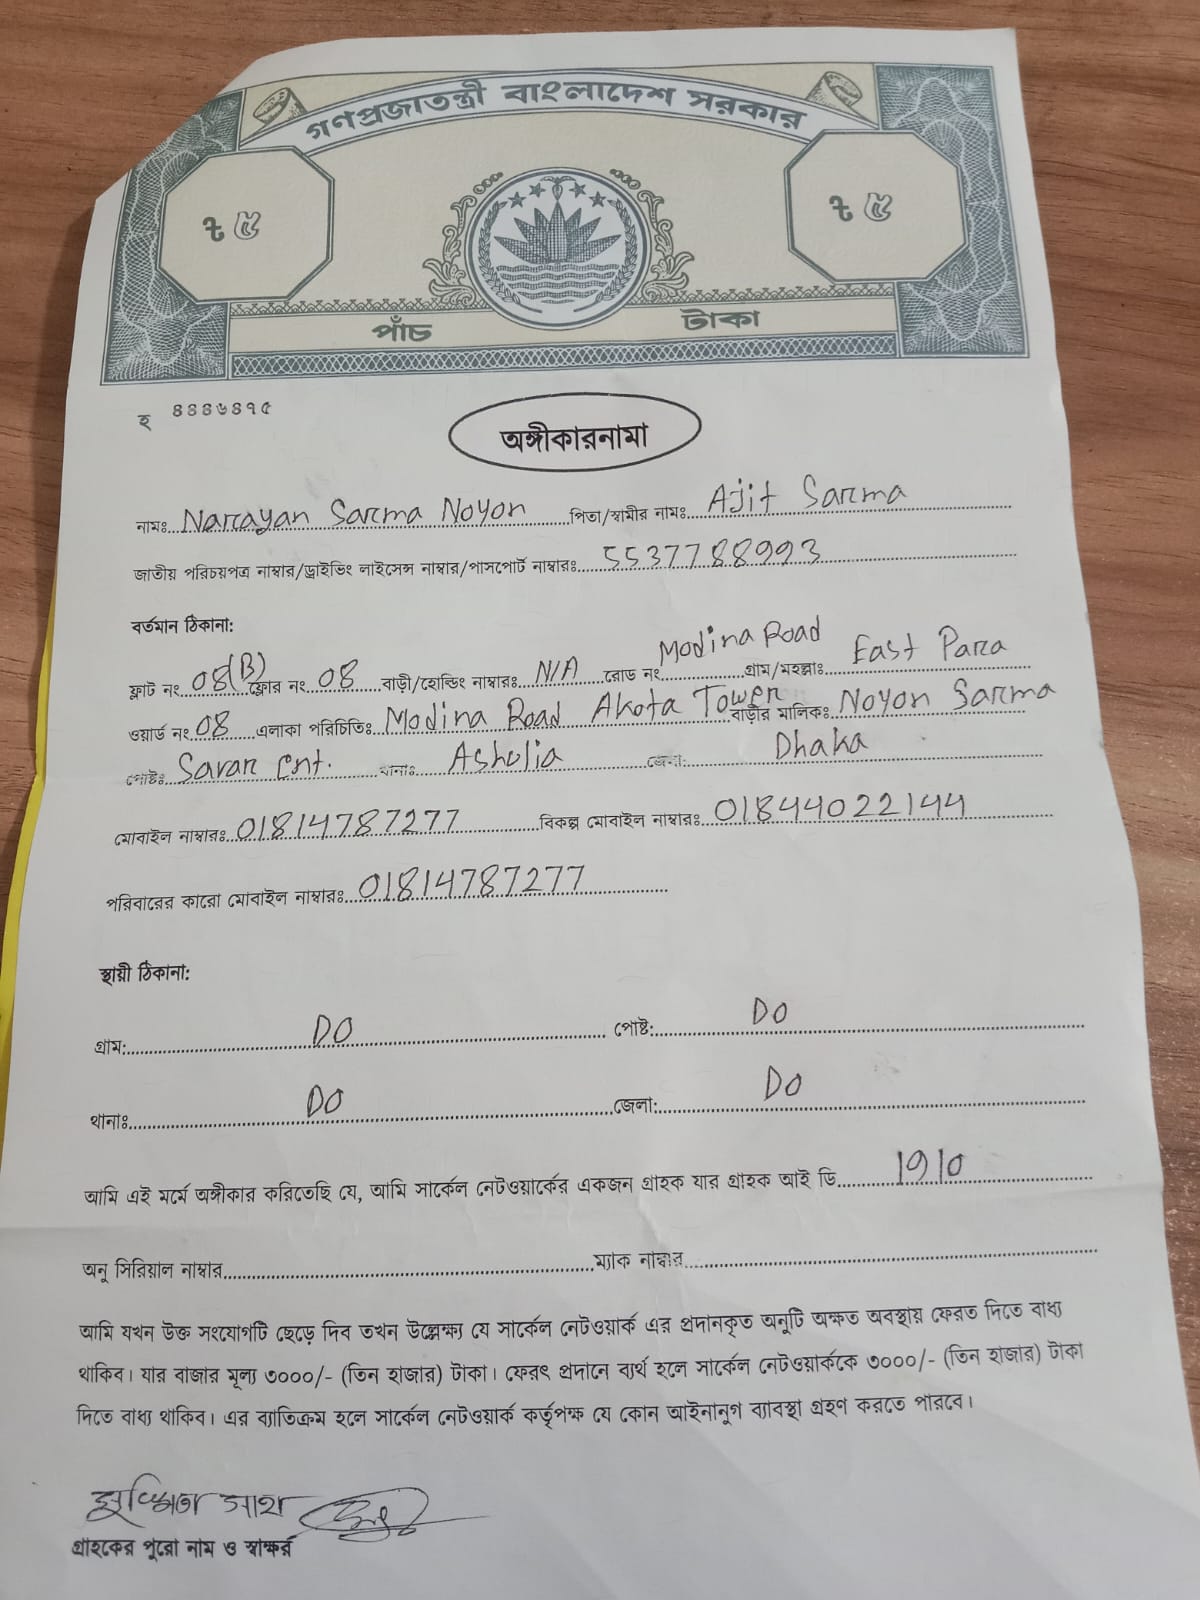 গণপ্রজাতন্ত্রী বাংলাদেশ সরকার
৳ ৫ ৳ ৫
পাঁচ টাকা
হ ৪৪৪৬৪৭৫
অঙ্গীকারনামা
নামঃ Narayan Sarma Noyon পিতা/স্বামীর নামঃ Ajit Sarma
জাতীয় পরিচয়পত্র নাম্বার/ড্রাইভিং লাইসেন্স নাম্বার/পাসপোর্ট নাম্বারঃ 5537788993
বর্তমান ঠিকানা:
ফ্লাট নং 08(B) ফ্লোর নং 08 বাড়ী/হোল্ডিং নাম্বারঃ N/A রোড নং Modina Road গ্রাম/মহল্লাঃ East Para
ওয়ার্ড নং 08 এলাকা পরিচিতিঃ Modina Road Akota Tower বাড়ীর মালিকঃ Noyon Sarma
পোষ্টঃ Savar Cnt. থানাঃ Ashulia জেলা: Dhaka
মোবাইল নাম্বারঃ 01814787277 বিকল্প মোবাইল নাম্বারঃ 01844022144
পরিবারের কারো মোবাইল নাম্বারঃ 01814787277
স্থায়ী ঠিকানা:
গ্রাম: DO পোষ্ট: DO
থানাঃ DO জেলা: DO
আমি এই মর্মে অঙ্গীকার করিতেছি যে, আমি সার্কেল নেটওয়ার্কের একজন গ্রাহক যার গ্রাহক আই ডি 1910
অনু সিরিয়াল নাম্বার ম্যাক নাম্বার
আমি যখন উক্ত সংযোগটি ছেড়ে দিব তখন উল্লেক্ষ্য যে সার্কেল নেটওয়ার্ক এর প্রদানকৃত অনুটি অক্ষত অবস্থায় ফেরত দিতে বাধ্য
থাকিব। যার বাজার মূল্য ৩০০০/- (তিন হাজার) টাকা। ফেরৎ প্রদানে ব্যর্থ হলে সার্কেল নেটওয়ার্ককে ৩০০০/- (তিন হাজার) টাকা
দিতে বাধ্য থাকিব। এর ব্যাতিক্রম হলে সার্কেল নেটওয়ার্ক কর্তৃপক্ষ যে কোন আইনানুগ ব্যাবস্থা গ্রহণ করতে পারবে।
গ্রাহকের পুরো নাম ও স্বাক্ষর